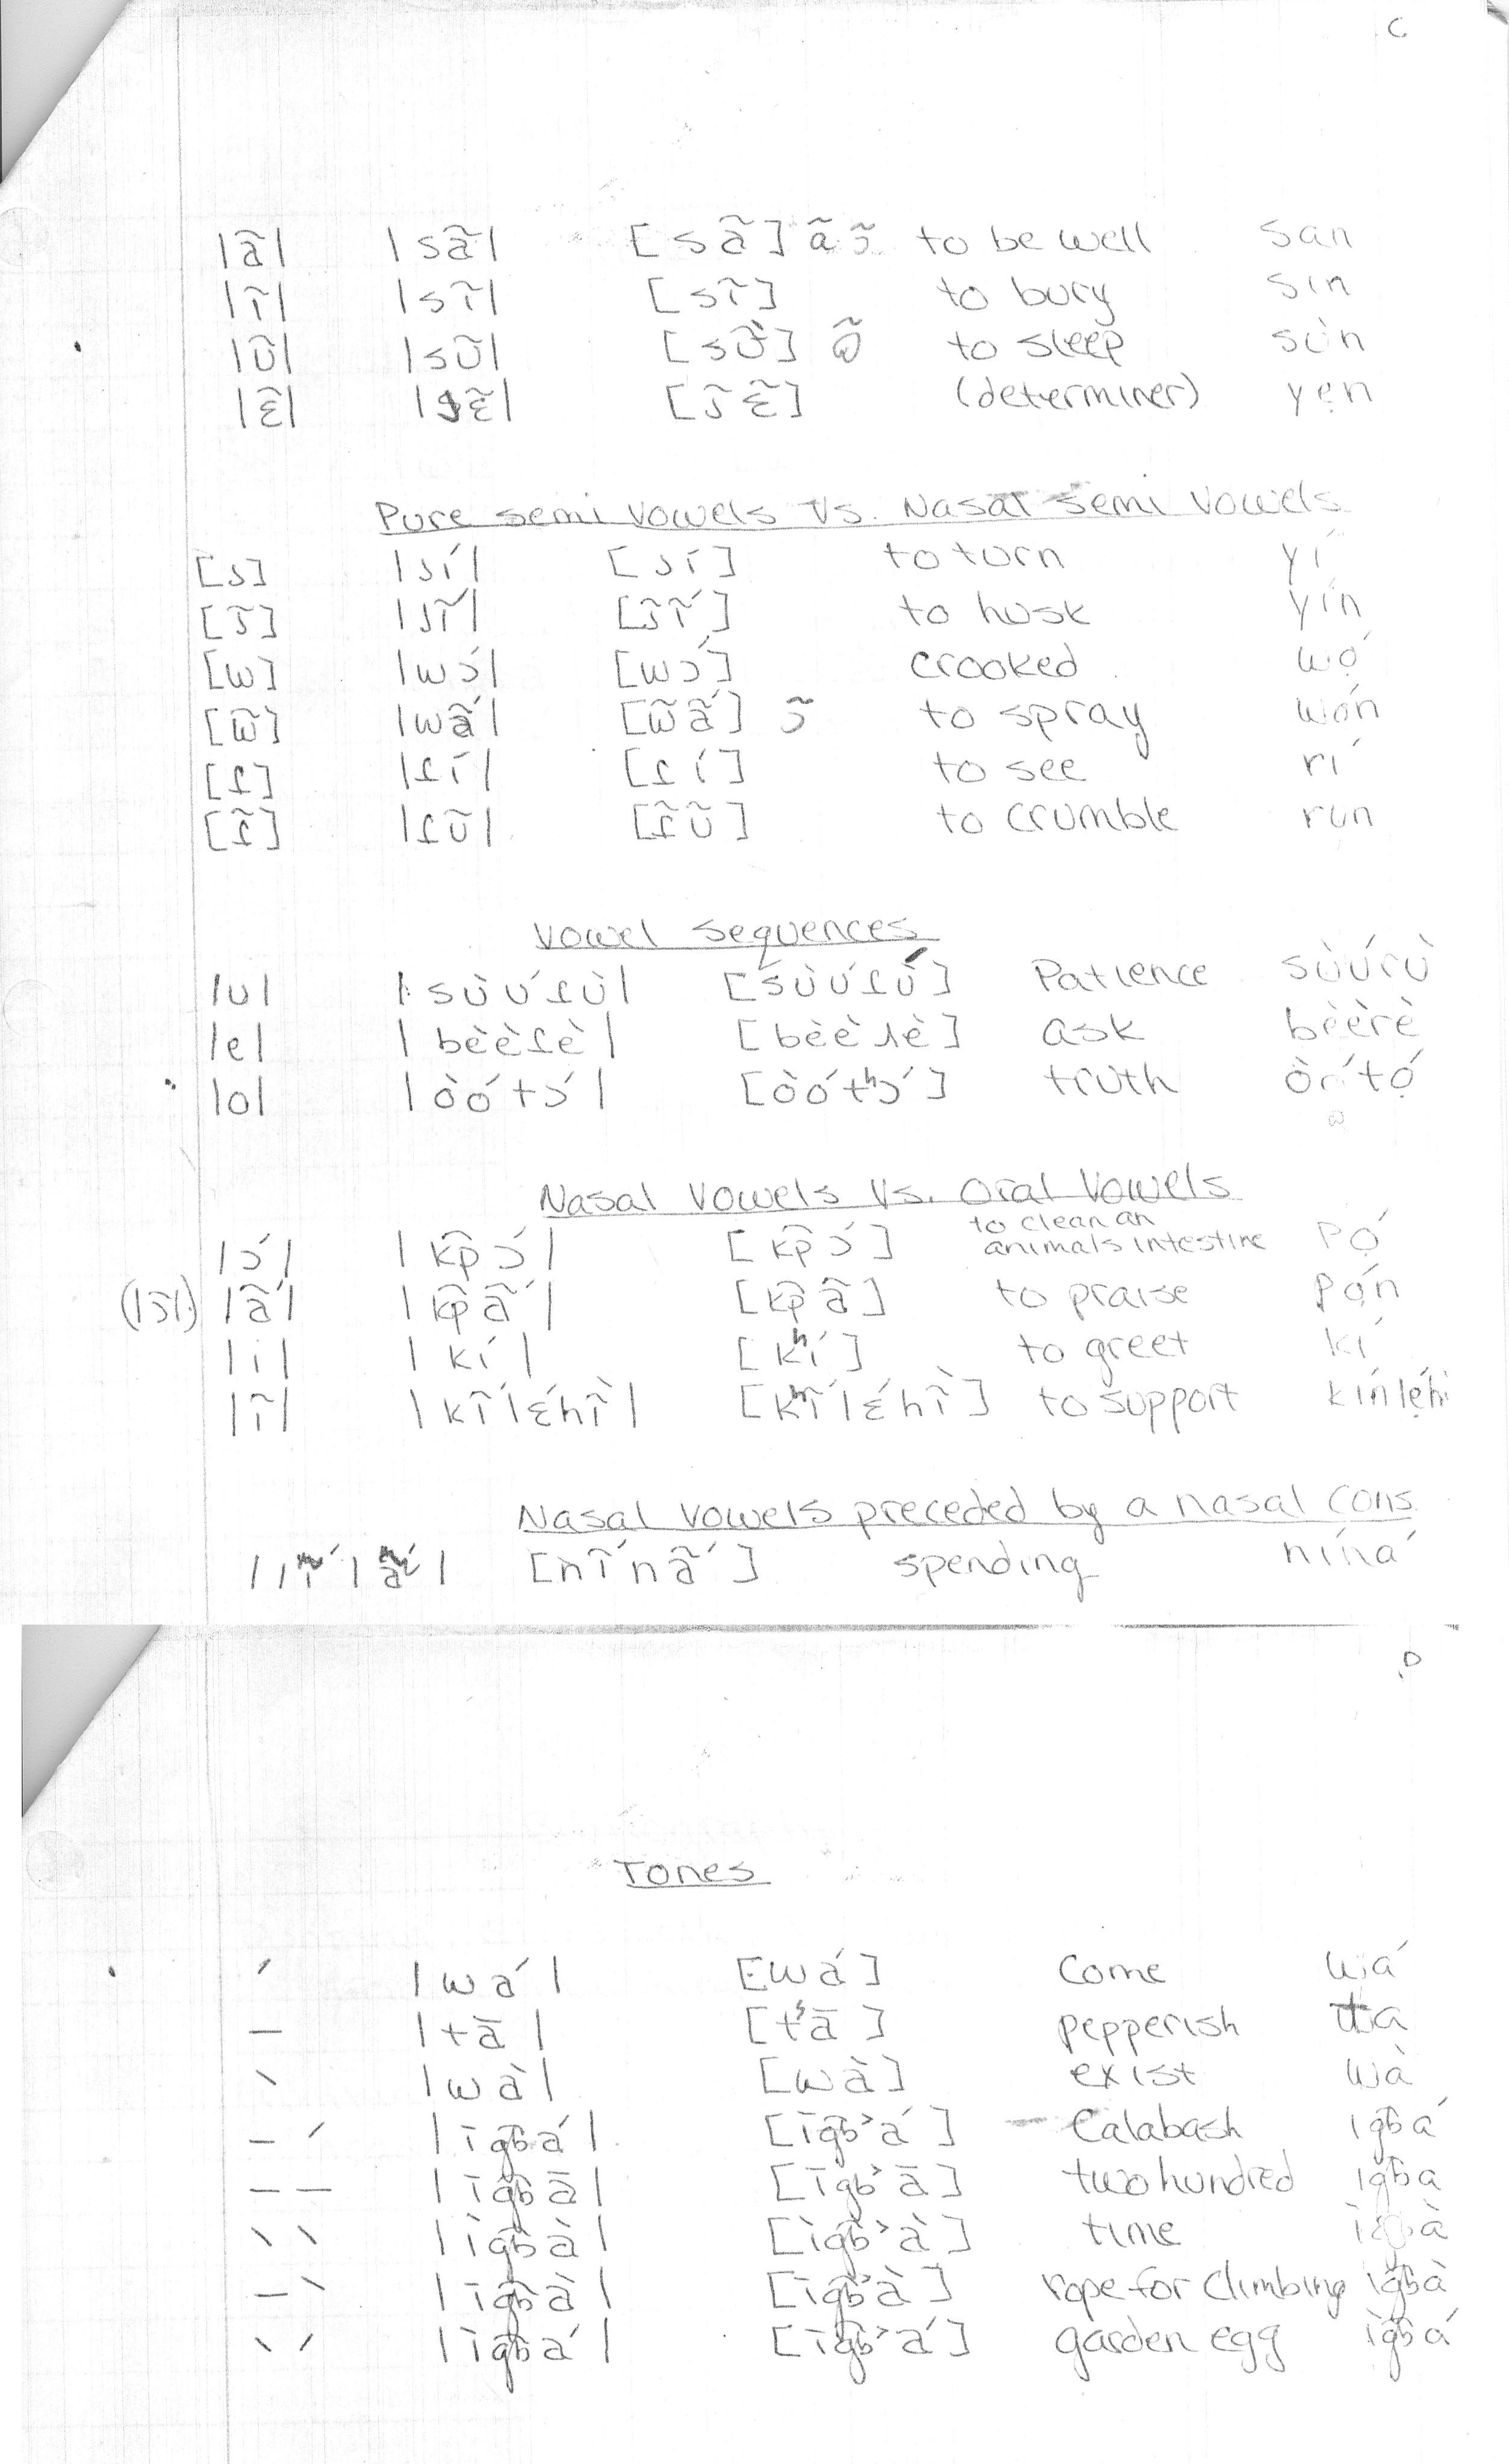 C
|ã| |sã| [sã] ã ɔ̃ to be well san
|ĩ| |sĩ| [sĩ] to bury sin
|ũ| |sũ| [sũ̀] ʊ̃ to sleep sùn
|ɛ̃| |jɛ̃| [j̃ɛ̃] (determiner) yẹn
Pure semi vowels Vs. Nasal semi vowels
[j] |jí| [jí] to turn yí
[j̃] |jĩ́| [j̃ĩ́] to husk yín
[w] |wɔ́| [wɔ́] crooked wọ́
[w̃] |wã́| [w̃ã́] ɔ̃ to spray wọ́n
[ɾ] |ɾí| [ɾí] to see rí
[ɾ̃] |ɾũ| [ɾ̃ũ] to crumble rún
Vowel sequences
|u| |sùúɾù| [sùúɾù] Patience sùúrù
|e| |bèèɾè| [bèèɹè] ask bèèrè
|o| |òótɔ́| [òótʰɔ́] truth òótọ́
Nasal Vowels Vs. Oral Vowels
|ɔ́| |k͡pɔ́| [k͡pɔ́] to clean an animals intestine pọ́
(|ɔ̃|) |ã́| |k͡pã́| [k͡pã] to praise pọ́n
|i| |kí| [kʰí] to greet kí
|ĩ| |kĩ́lɛ́hĩ̀| [kʰĩ́lɛ́hĩ̀] to support kínlẹ́hì
Nasal vowels preceded by a nasal cons.
|lĩ́lã́| [nĩ́nã́] spending níná
D
Tones
ˊ |wá| [wá] Come wá
– |tā| [tʰā] pepperish ta
ˋ |wà| [wà] exist wà
– ˊ |īg͡bá| [īg͡b˃á] Calabash igbá
– – |īg͡bā| [īg͡b˃ā] two hundred igba
ˋ ˋ |ìg͡bà| [ìg͡b˃à] time ìgbà
– ˋ |īg͡bà| [īg͡b˃à] rope for climbing igbà
ˋ ˊ |ìg͡bá| [ìg͡b˃á] garden egg ìgbá